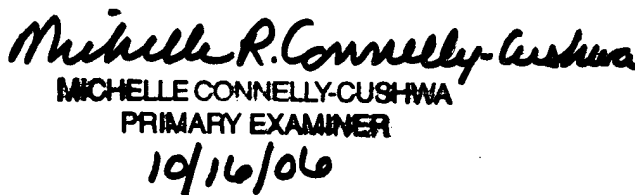 Michelle R. Connelly-Cushwa
MICHELLE CONNELLY-CUSHWA
PRIMARY EXAMINER
10/16/06